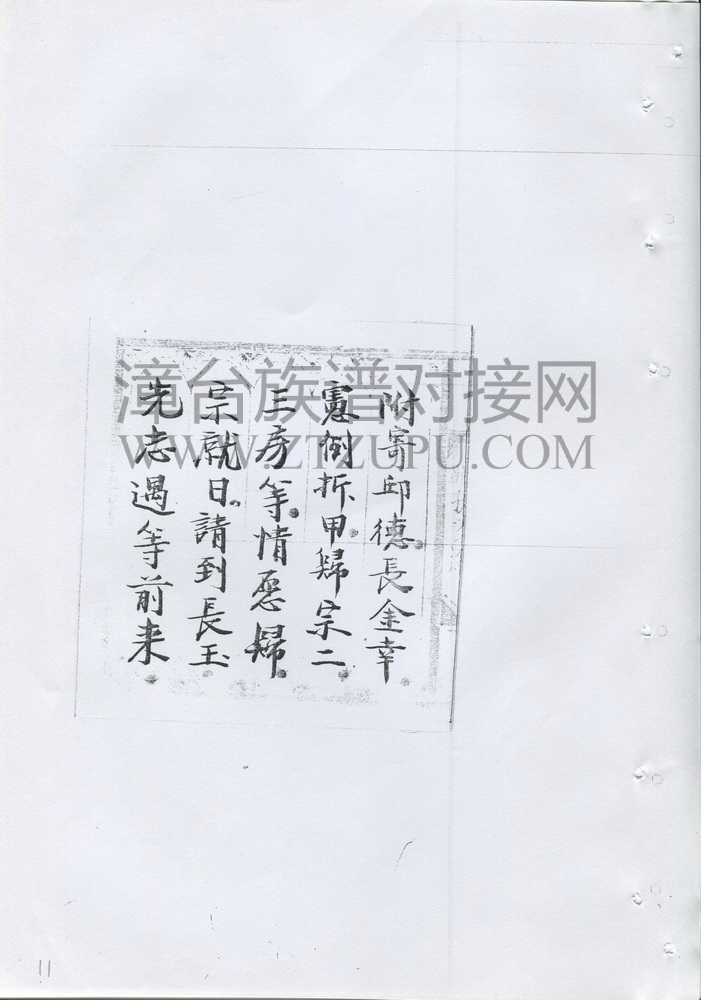 附寄邱德長金幸
憲例拆甲歸宗二
三房等情愿歸
宗就日請到長玉
先志遇等前来
漳台族谱对接网
WWW.ZTZUPU.COM
11